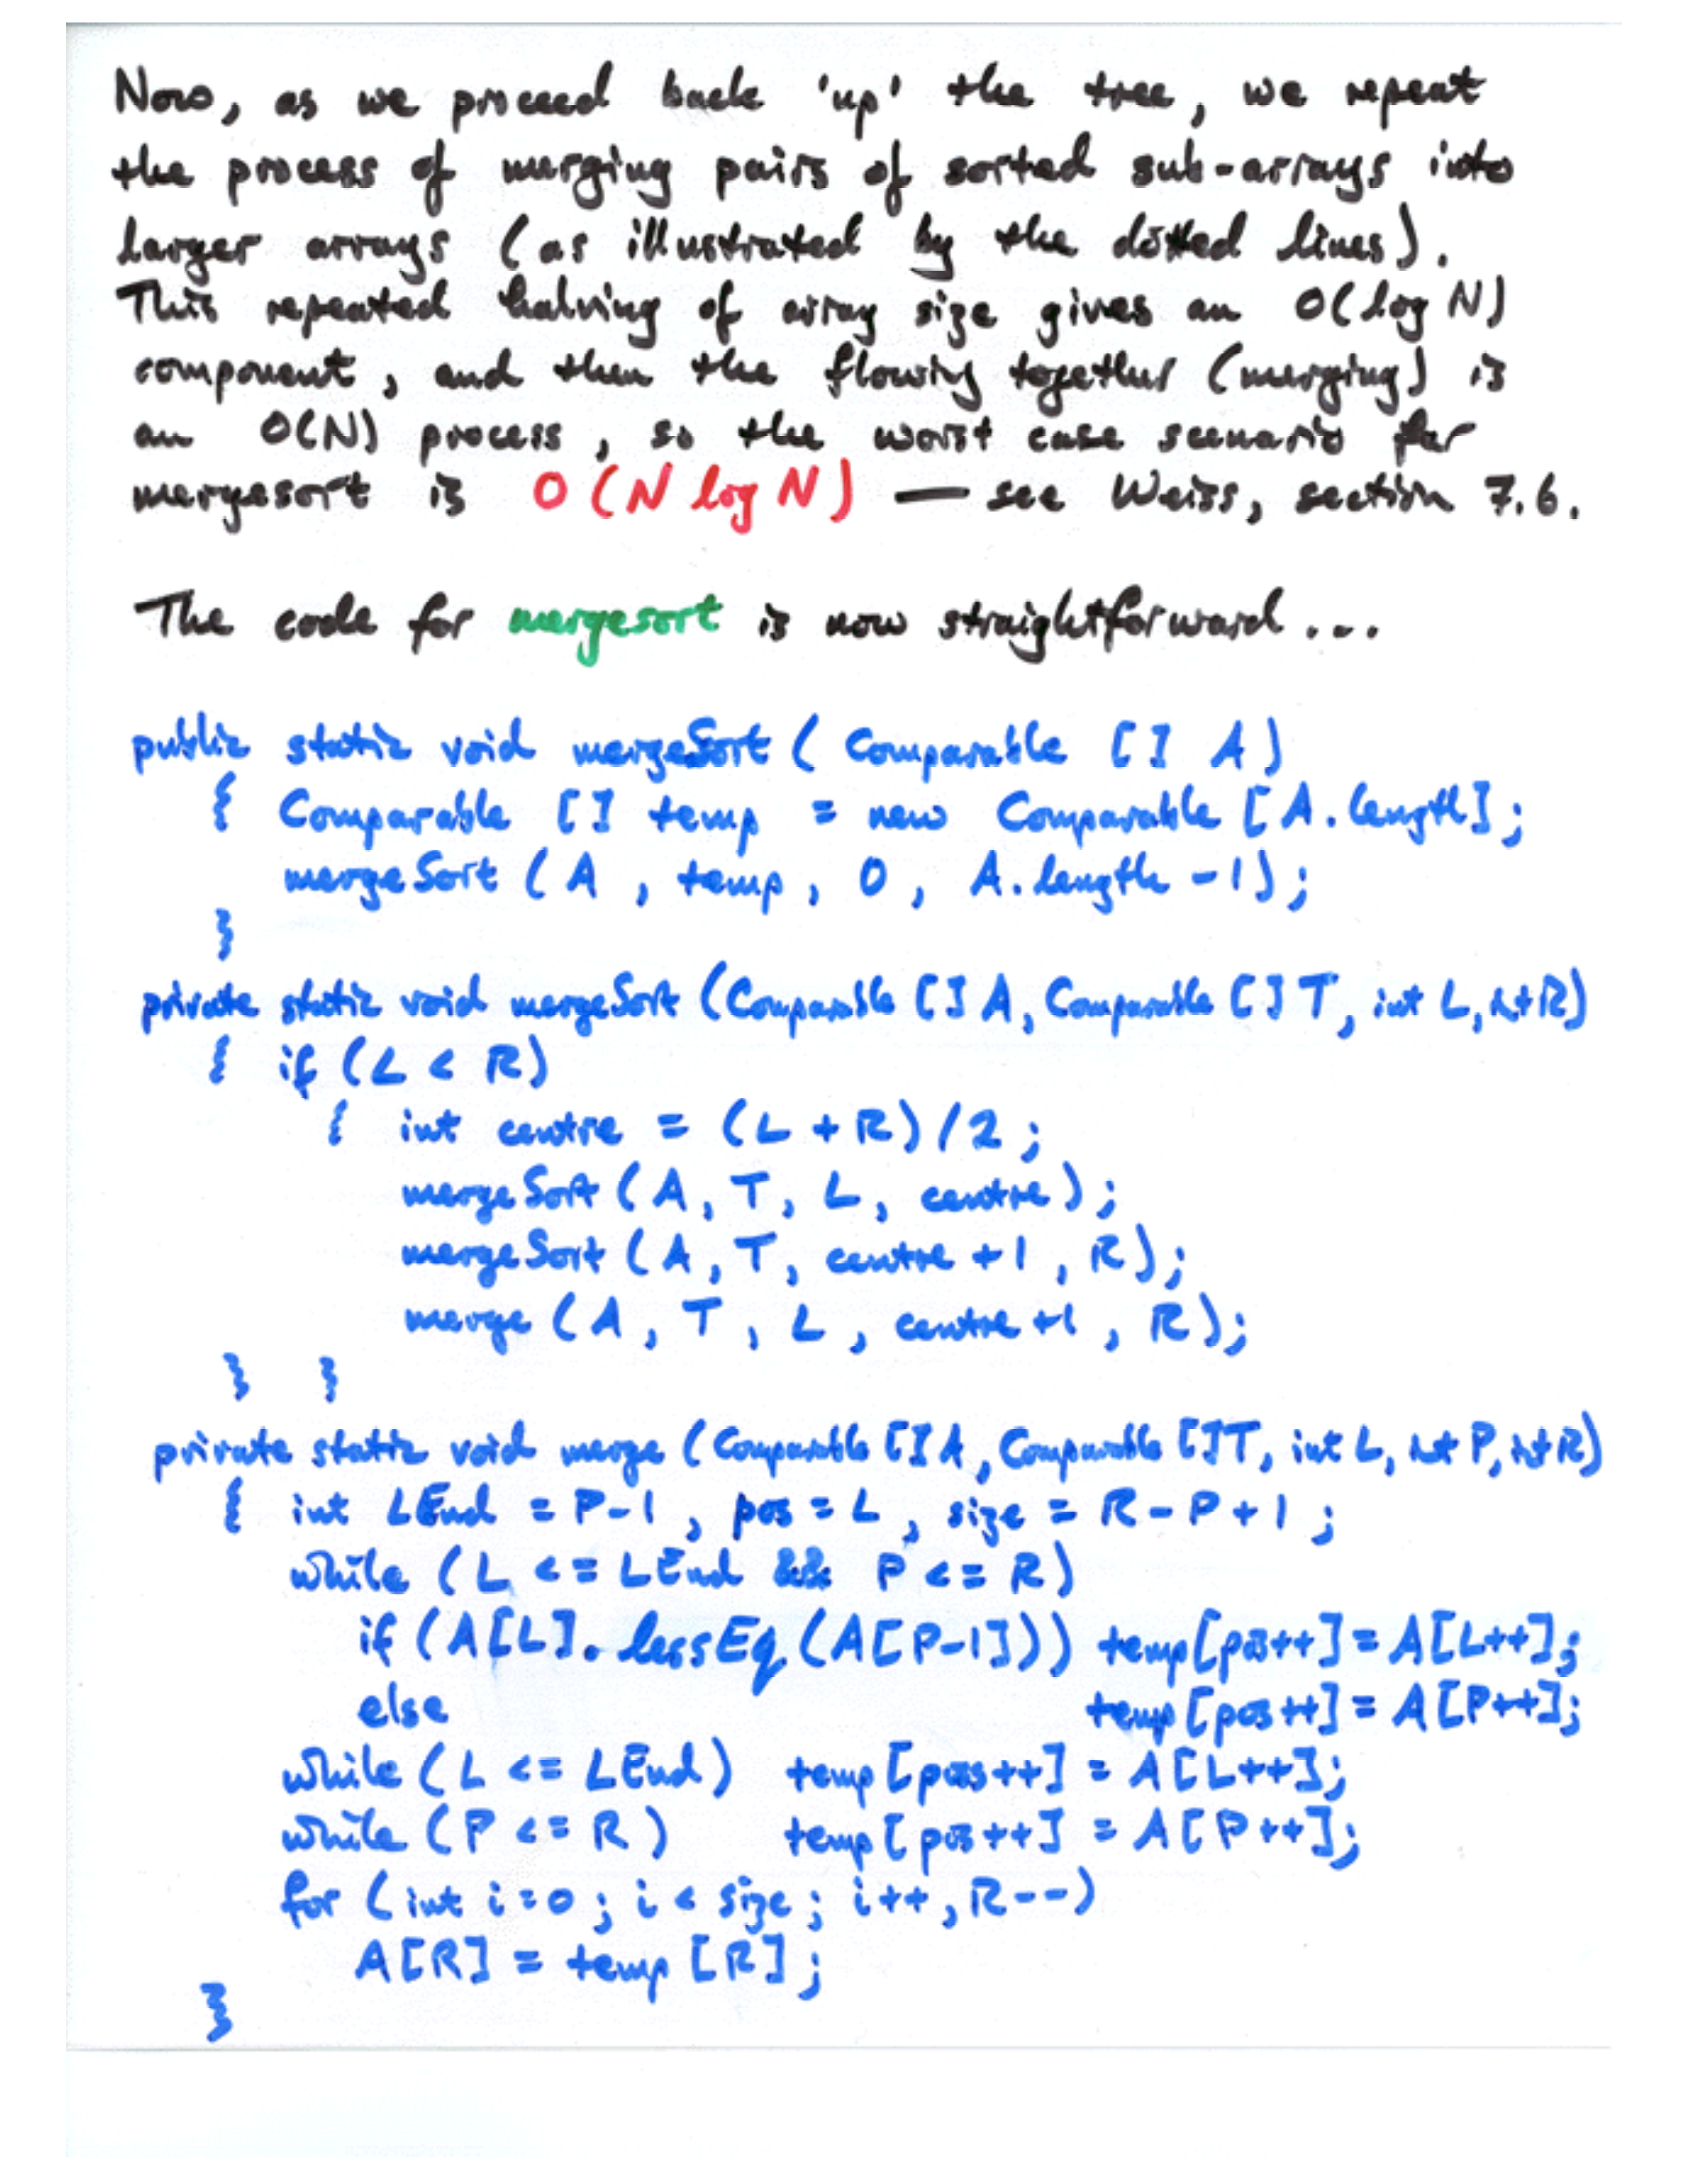 Now, as we proceed back 'up' the tree, we repeat
the process of merging pairs of sorted sub-arrays into
larger arrays (as illustrated by the dotted lines).
This repeated halving of array size gives an O(log N)
component, and then the flowing together (merging) is
an O(N) process, so the worst case scenario for
mergesort is O(N log N) — see Weiss, section 7.6.
The code for mergesort is now straightforward...
public static void mergeSort (Comparable [] A)
{ Comparable [] temp = new Comparable [A.length];
mergeSort (A, temp, 0, A.length -1);
}
private static void mergeSort (Comparable [] A, Comparable [] T, int L, int R)
{ if (L < R)
{ int centre = (L + R)/2;
mergeSort (A, T, L, centre);
mergeSort (A, T, centre +1, R);
merge (A, T, L, centre +1, R);
} }
private static void merge (Comparable [] A, Comparable [] T, int L, int P, int R)
{ int LEnd = P-1, pos = L, size = R - P + 1;
while (L <= LEnd && P <= R)
if (A[L].lessEq(A[P-1])) temp[pos++] = A[L++];
else temp[pos++] = A[P++];
while (L <= LEnd) temp[pos++] = A[L++];
while (P <= R) temp[pos++] = A[P++];
for (int i=0; i < size; i++, R--)
A[R] = temp[R];
}